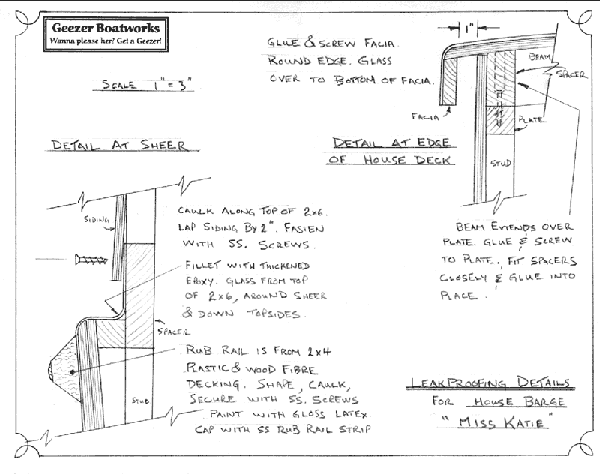 Geezer Boatworks
Wanna please her? Get a Geezer!
SCALE 1" = 3"
GLUE & SCREW FACIA.
ROUND EDGE. GLASS
OVER TO BOTTOM OF FACIA.
1"
BEAM
SPACER
FACIA
PLATE
STUD
DETAIL AT EDGE
OF HOUSE DECK
BEAM EXTENDS OVER
PLATE. GLUE & SCREW
TO PLATE. FIT SPACERS
CLOSELY & GLUE INTO
PLACE.
DETAIL AT SHEER
SIDING
CAULK ALONG TOP OF 2x6.
LAP SIDING BY 2". FASTEN
WITH SS. SCREWS.
FILLET WITH THICKENED
EPOXY. GLASS FROM TOP
OF 2x6, AROUND SHEER
& DOWN TOPSIDES.
SPACER
RUB RAIL IS FROM 2x4
PLASTIC & WOOD FIBRE
DECKING. SHAPE, CAULK,
SECURE WITH SS. SCREWS
PAINT WITH GLOSS LATEX
CAP WITH SS RUB RAIL STRIP
STUD
LEAKPROOFING DETAILS
FOR HOUSE BARGE
"MISS KATIE"